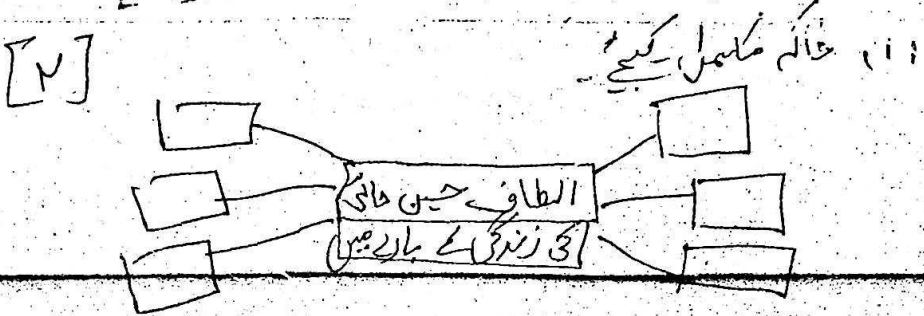 (i) خاکہ مکمل کیجئے۔ [۲]
الطاف حسین حالی
کی زندگی کے بارے میں